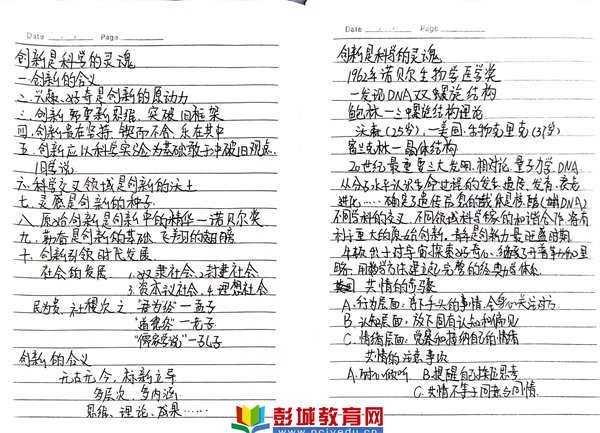 Date / / Page
创新是科学的灵魂
一.创新的含义
二.兴趣、好奇是创新的原动力
三.创新 需要新思想、突破旧框架
四.创新贵在坚持、锲而不舍、乐在其中
五.创新应以科学实验为基础敢于冲破旧观点、
旧学说
六.科学交叉领域是创新的沃土
七.灵感是创新的种子
八.原始创新是创新中的精华—诺贝尔奖
九.勤奋是创新的基础、飞翔的翅膀
十.创新引领时代发展
社会的发展 1.奴隶社会、封建社会
3.资本主义社会 4.理想社会
民为贵、社稷次之 "君为轻"—孟子
"道家"—老子
"儒家学说"—孔子
创新的含义
无古无今,标新立异
多层次、多内涵
思维、理论、成果……
Date / / Page
创新是科学的灵魂
1962年诺贝尔生物学医学奖
—发现DNA双螺旋结构
鲍林—三螺旋结构理论
沃森(25岁),—美国.生物克里克(37岁)
富兰克林—晶体结构
20世纪最重要三大发现,相对论,量子力学,DNA
从分子水平认识生命过程的发生、遗传、发育、衰老
进化……确定了遗传信息的载体是核酸(DNA)
不同学科的交叉,不同领域科学家的和谐合作,将有
利于重大的原始创新.青年是创新力最旺盛时期
牛顿出于对宇宙探索好奇心、继续了开普勒和伽里
略,用数学方法建立了完整的经典力学体系
共情的奇强
A.行为层面:放下手头的事情,全身心关注对方
B.认知层面:放下固有认知和偏见
C.情绪层面:觉察和接纳自己的情绪
共情的注意事项
A.耐心倾听 B.提醒自己换位思考
C.共情不等于同意与同情.
彭城教育网
www.pcjyedu.cn